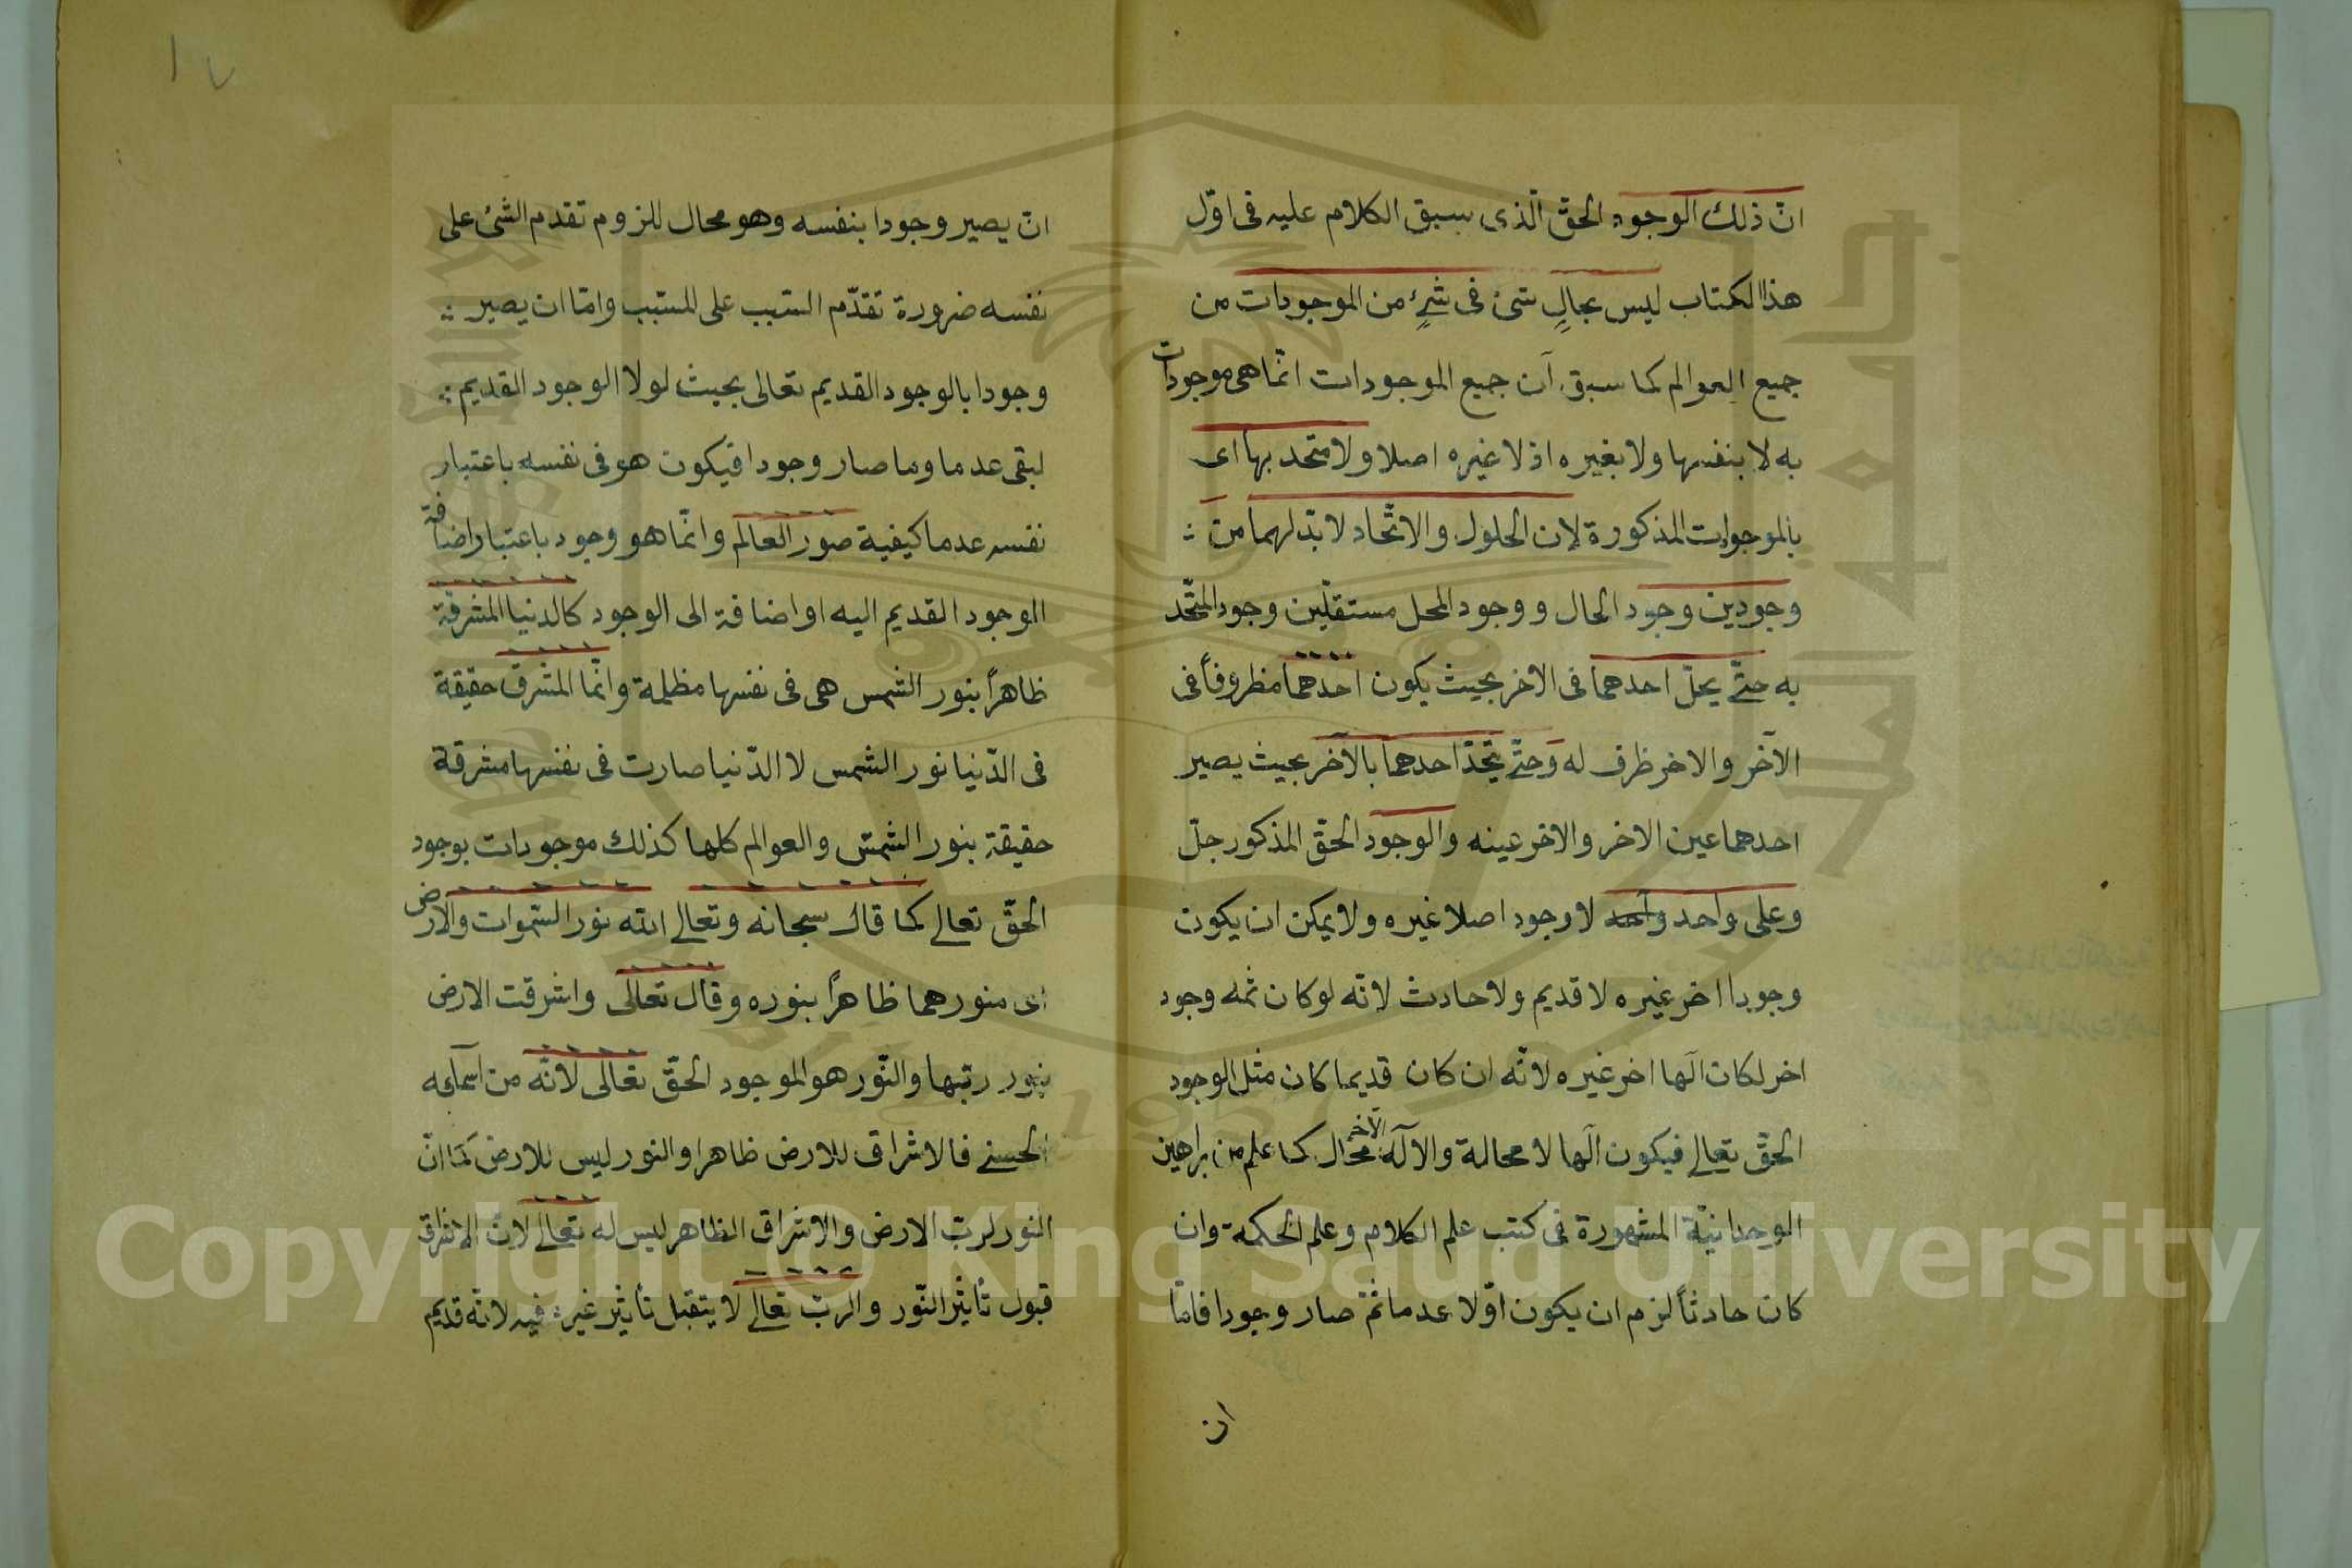 انّ ذلك الوجود الحقّ الّذى سبق الكلام عليه فى اوّل
هذا الكتاب ليس بحالٍ شئ فى شئٍ من الموجودات من
جميع العوالم كما سبق آن جميع الموجودات انّما هى موجودات
به لا بنفسها ولا بغيره اذ لا غيره اصلا ولا متحد بها اى
بالموجوات المذكورة لان الحلول والاتّحاد لا بدّ لهما من
وجودين وجود الحال و ووجود المحل مستقلّين وجود المتّحد
به حتّى يحلّ احدهما فى الاخر بحيث يكون احدهما مظروفاً فى
الآخر والاخر ظرف له وَحتّى يتّحد احدهما بالآخر بحيث يصير
احدهما عين الاخر والاخر عينه والوجود الحقّ المذكور جلّ
وعلى واحد واحد لا وجود اصلا غيره ولا يمكن ان يكون
وجودا اخر غيره لا قديم ولا حادث لانه لو كان ثمه وجود
اخر لكان آلها اخر غيره لانّه ان كان قديما كان مثل الوجود
الحقّ تعالى فيكون آلها لا محالة والآله الآخر محال كما علم من براهين
الوحدانيّة المشهورة فى كتب علم الكلام وعلم الحكمة وان
كان حادثاً لزم ان يكون اوّلا عدما ثمّ صار وجودا فامّا
ان
١٧
ان يصير وجودا بنفسه وهو محال للزوم تقدم الشئ على
نفسه ضرورة تقدّم السّبب على المسّبب وامّا ان يصير
وجودا بالوجود القديم تعالى بحيث لولا الوجود القديم
لبقى عدما وما صار وجودا فيكون هو فى نفسه باعتبار
نفسه عدما كيفية صور العالم وانّما هو وجود باعتبار اضافة
الوجود القديم اليه او اضافة الى الوجود كالدنيا المشرقة
ظاهراً بنور الشمس هى فى نفسها مظلمة وانّما المشرق حقيقة
فى الدّنيا نور الشمس لا الدّنيا صارت فى نفسها مشرقة
حقيقة بنور الشمس والعوالم كلها كذلك موجودات بوجود
الحقّ تعالى كما قال سبحانه وتعالى الله نور السّموات والارض
اى منورهما ظاهراً بنوره وقال تعالى واشرقت الارض
بنور ربّها والنّور هو الموجود الحقّ تعالى لانّه من آسمآئه
الحسنى فالاشراق للارض ظاهرا والنور ليس للارض كَمَا انّ
النور لربّ الارض والاشراق الظاهر ليس له تعالى لانّ الاشراق
قبول تأثير النّور والربّ تعالى لا يتقبل تأثير غيره فيه لانّه قديم
Copyright © King Saud University
1957